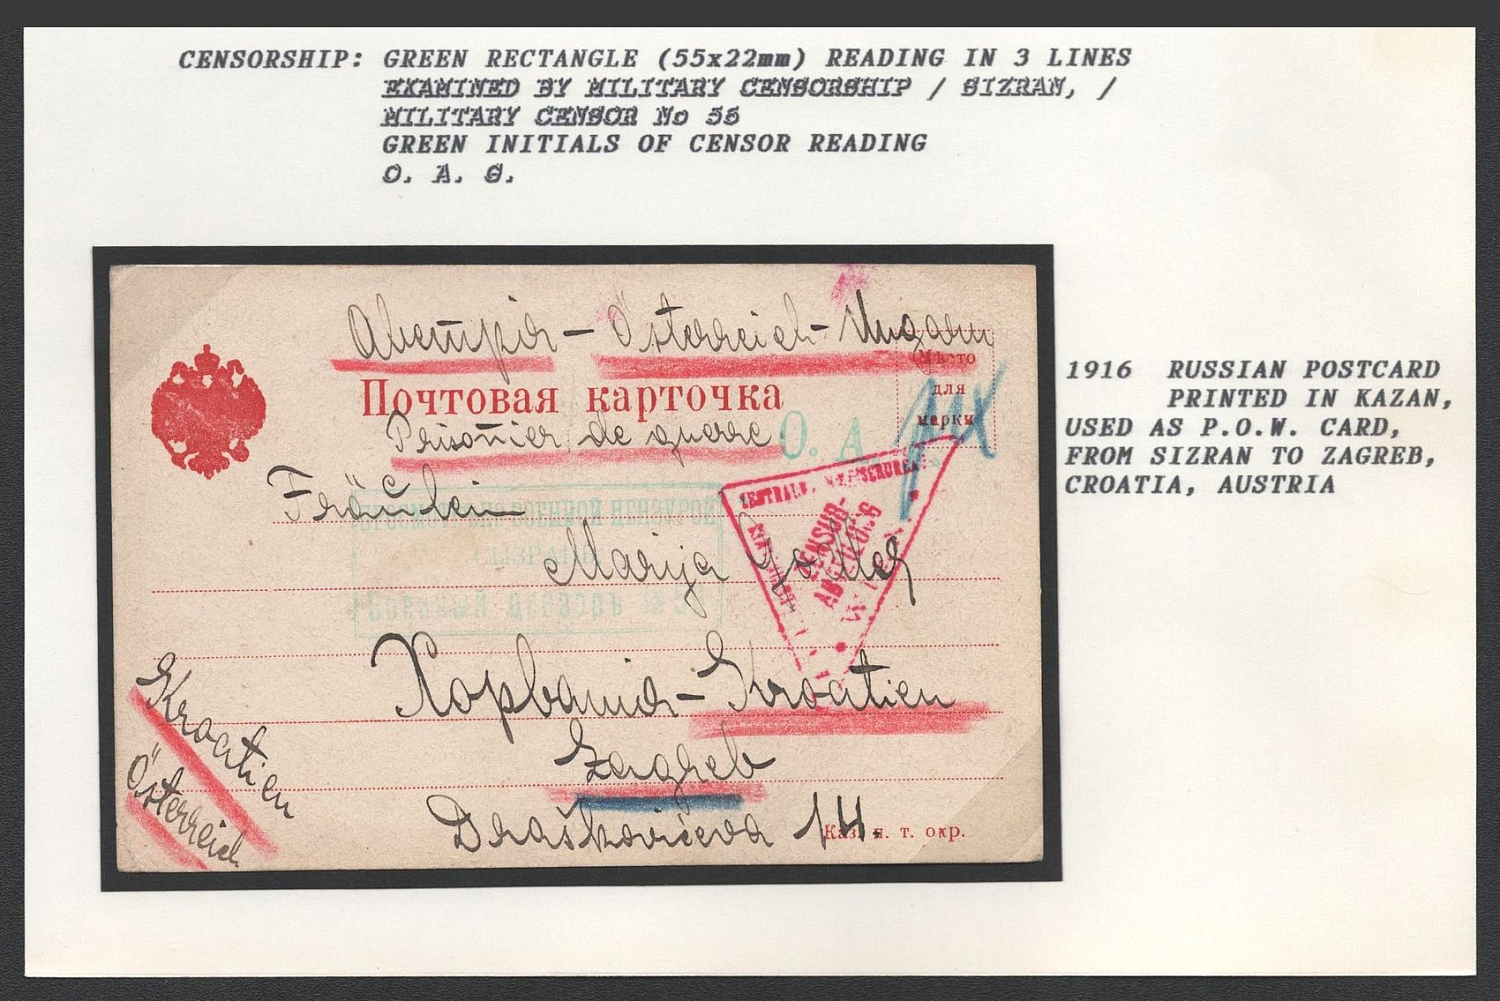 CENSORSHIP: GREEN RECTANGLE (55x22mm) READING IN 3 LINES
EXAMINED BY MILITARY CENSORSHIP / SIZRAN, /
MILITARY CENSOR No 55
GREEN INITIALS OF CENSOR READING
O. A. G.
Австрія - Österreich-Ungarn
Место
для
марки
Почтовая карточка
Prisonier de guerre
O. A.
Fräulein
ВОЕННОЙ ЦЕНЗУРОЙ
СЫЗРАНЬ
Военный цензоръ №
CENSUR-
Marija
Хорватія - Kroatien
Zagreb
Draškovićeva 14.
Каз. п. т. окр.
Kroatien
Österreich
1916 RUSSIAN POSTCARD
PRINTED IN KAZAN,
USED AS P.O.W. CARD,
FROM SIZRAN TO ZAGREB,
CROATIA, AUSTRIA